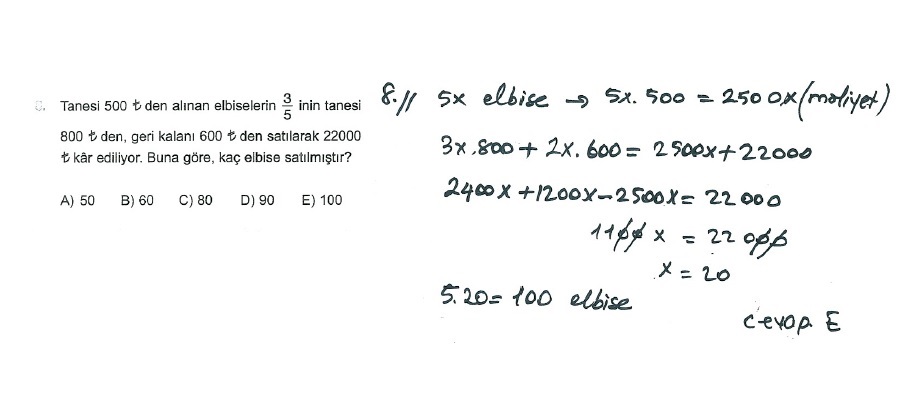 Tanesi 500 ₺ den alınan elbiselerin 3/5 inin tanesi
800 ₺ den, geri kalanı 600 ₺ den satılarak 22000
₺ kâr ediliyor. Buna göre, kaç elbise satılmıştır?
A) 50 B) 60 C) 80 D) 90 E) 100
8.// 5x elbise → 5x. 500 = 2500x (maliyet)
3x.800 + 2x.600 = 2500x + 22000
2400x + 1200x - 2500x = 22000
1100 x = 22000
x = 20
5.20 = 100 elbise
cevap E